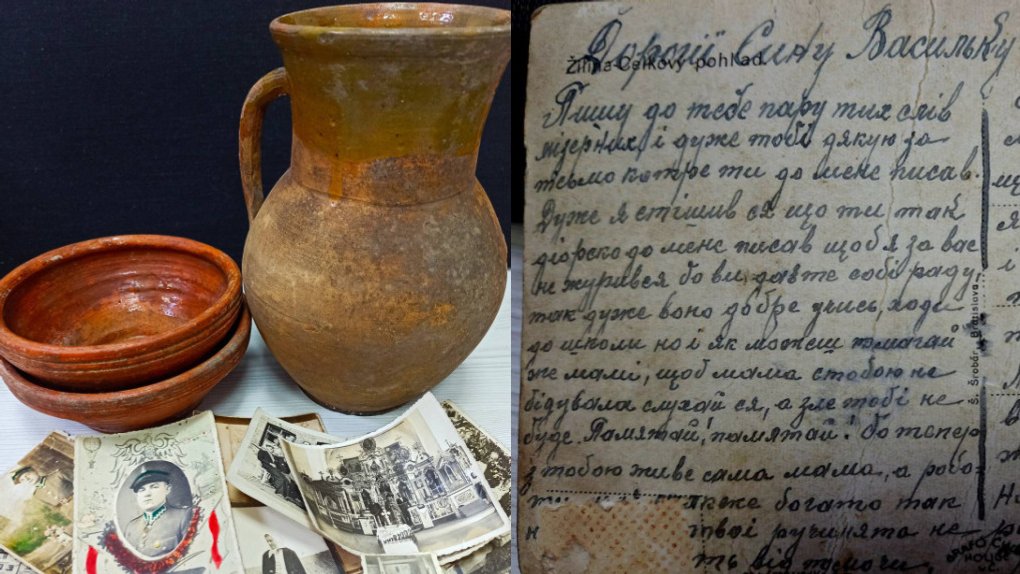 Дорогії Сину Васильку
Žilina Celkový pohľad.
Пишу до тебе пару тих слів
мізерних, і дуже тобі дякую за
письмо котре ти до мене писав.
Дуже я стішив ся що ти так
до мене писав щоб я за вас
не журився бо ви даєте собі раду,
так дуже воно добре учись, ходи
до школи но і як можеш помагай
же мамі, щоб мама стобою не
бідувала слухай ся, а зле тобі не
буде. Памятай, памятай! бо тепер
з тобою живе сама мама, а робо-
так
твої рученята не
ть від помочи,
Š. Šrobár, Bratislava,